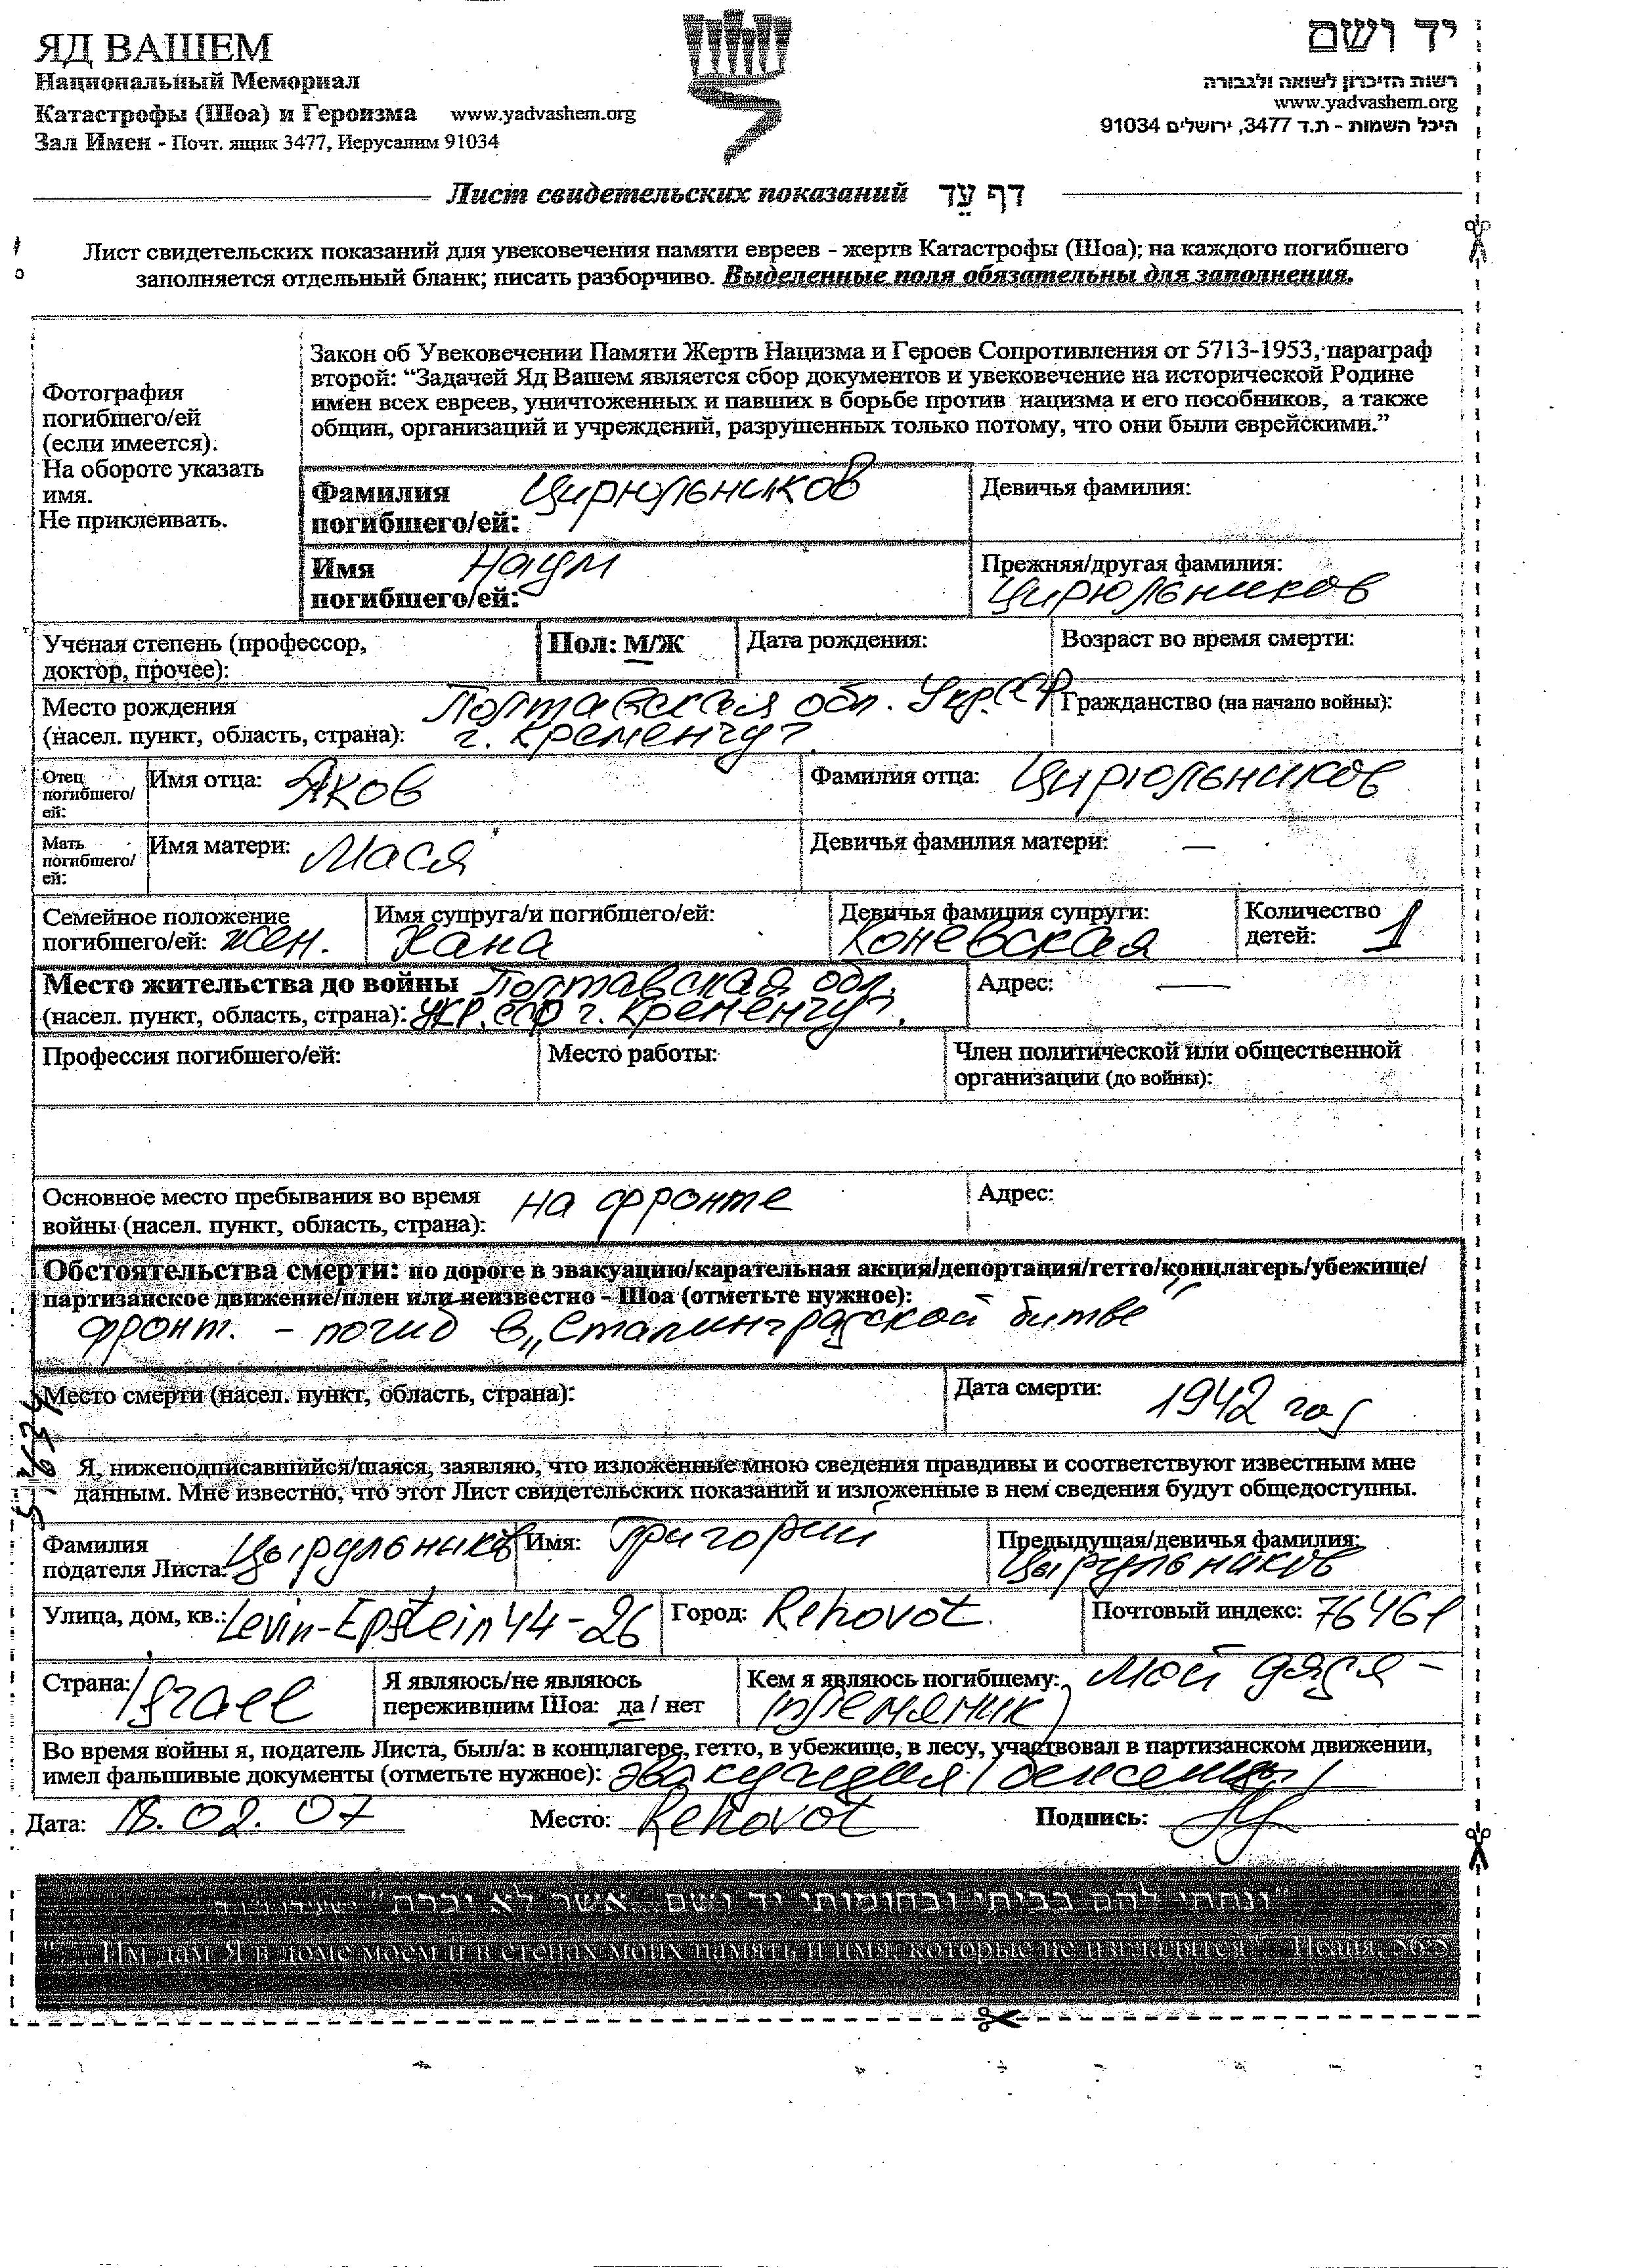 ЯД ВАШЕМ
Национальный Мемориал
Катастрофы (Шоа) и Героизма www.yadvashem.org
Зал Имен - Почт. ящик 3477, Иерусалим 91034
יד ושם
רשות הזיכרון לשואה ולגבורה
www.yadvashem.org
היכל השמות - ת.ד 3477, ירושלים 91034
Лист свидетельских показаний דף עֵד
Лист свидетельских показаний для увековечения памяти евреев - жертв Катастрофы (Шоа); на каждого погибшего
заполняется отдельный бланк; писать разборчиво. Выделенные поля обязательны для заполнения.
Фотография
погибшего/ей
(если имеется).
На обороте указать
имя.
Не приклеивать.
Закон об Увековечении Памяти Жертв Нацизма и Героев Сопротивления от 5713-1953, параграф
второй: “Задачей Яд Вашем является сбор документов и увековечение на исторической Родине
имен всех евреев, уничтоженных и павших в борьбе против нацизма и его пособников, а также
общин, организаций и учреждений, разрушенных только потому, что они были еврейскими.”
Фамилия погибшего/ей: Цирюльников
Девичья фамилия:
Имя погибшего/ей: Наум
Прежняя/другая фамилия: Цирюльников
Ученая степень (профессор,
доктор, прочее):
Пол: М/Ж
Дата рождения:
Возраст во время смерти:
Место рождения Полтавская обл. Укр.ССР
(насел. пункт, область, страна): г. Кременчуг.
Гражданство (на начало войны):
Отец погибшего/ей:
Имя отца: Яков
Фамилия отца: Цирюльников
Мать погибшего/ей:
Имя матери: Мася
Девичья фамилия матери: —
Семейное положение
погибшего/ей: жен.
Имя супруга/и погибшего/ей: Хана
Девичья фамилия супруги: Коневская
Количество детей: 1
Место жительства до войны Полтавская обл.
(насел. пункт, область, страна): УКР.ССР г. Кременчуг.
Адрес: —
Профессия погибшего/ей:
Место работы:
Член политической или общественной
организации (до войны):
Основное место пребывания во время
войны (насел. пункт, область, страна): на фронте
Адрес:
Обстоятельства смерти: по дороге в эвакуацию/карательная акция/депортация/гетто/концлагерь/убежище/
партизанское движение/плен или неизвестно - Шоа (отметьте нужное):
фронт. - погиб в „Сталинградской битве”
Место смерти (насел. пункт, область, страна):
Дата смерти: 1942 год
Я, нижеподписавшийся/шаяся, заявляю, что изложенные мною сведения правдивы и соответствуют известным мне
данным. Мне известно, что этот Лист свидетельских показаний и изложенные в нем сведения будут общедоступны.
Фамилия
подателя Листа: Цырульников
Имя: Григорий
Предыдущая/девичья фамилия: Цырульников
Улица, дом, кв.: Levin-Epstein 44-26
Город: Rehovot.
Почтовый индекс: 76461
Страна: Israel
Я являюсь/не являюсь
пережившим Шоа: да / нет
Кем я являюсь погибшему: мой дядя -
племяник
Во время войны я, податель Листа, был/а: в концлагере, гетто, в убежище, в лесу, участвовал в партизанском движении,
имел фальшивые документы (отметьте нужное): эвакуация (беженцы)
Дата: 18.02.07 Место: Rehovot Подпись:
"ונתתי להם בביתי ובחומותי יד ושם... אשר לא יכרת"
"... Им дам Я в доме моем и в стенах моих память и имя, которые не изгладятся". Исаия, 56:5